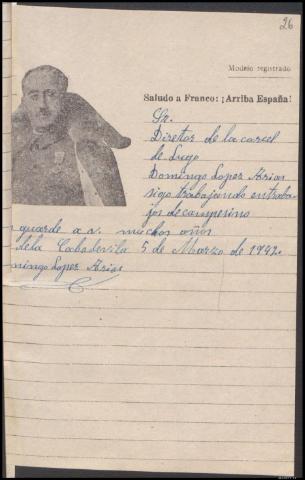 26
Modelo registrado
Saludo a Franco: ¡Arriba España!
Sr.
Diretor de la carcel
de Lugo
Domingo Lopez Arias
sigo trabajando en traba
jos de campesino
guarde a v. muchos años
dela Cabadevila 5 de Marzo de 1942
mingo Lopez Arias